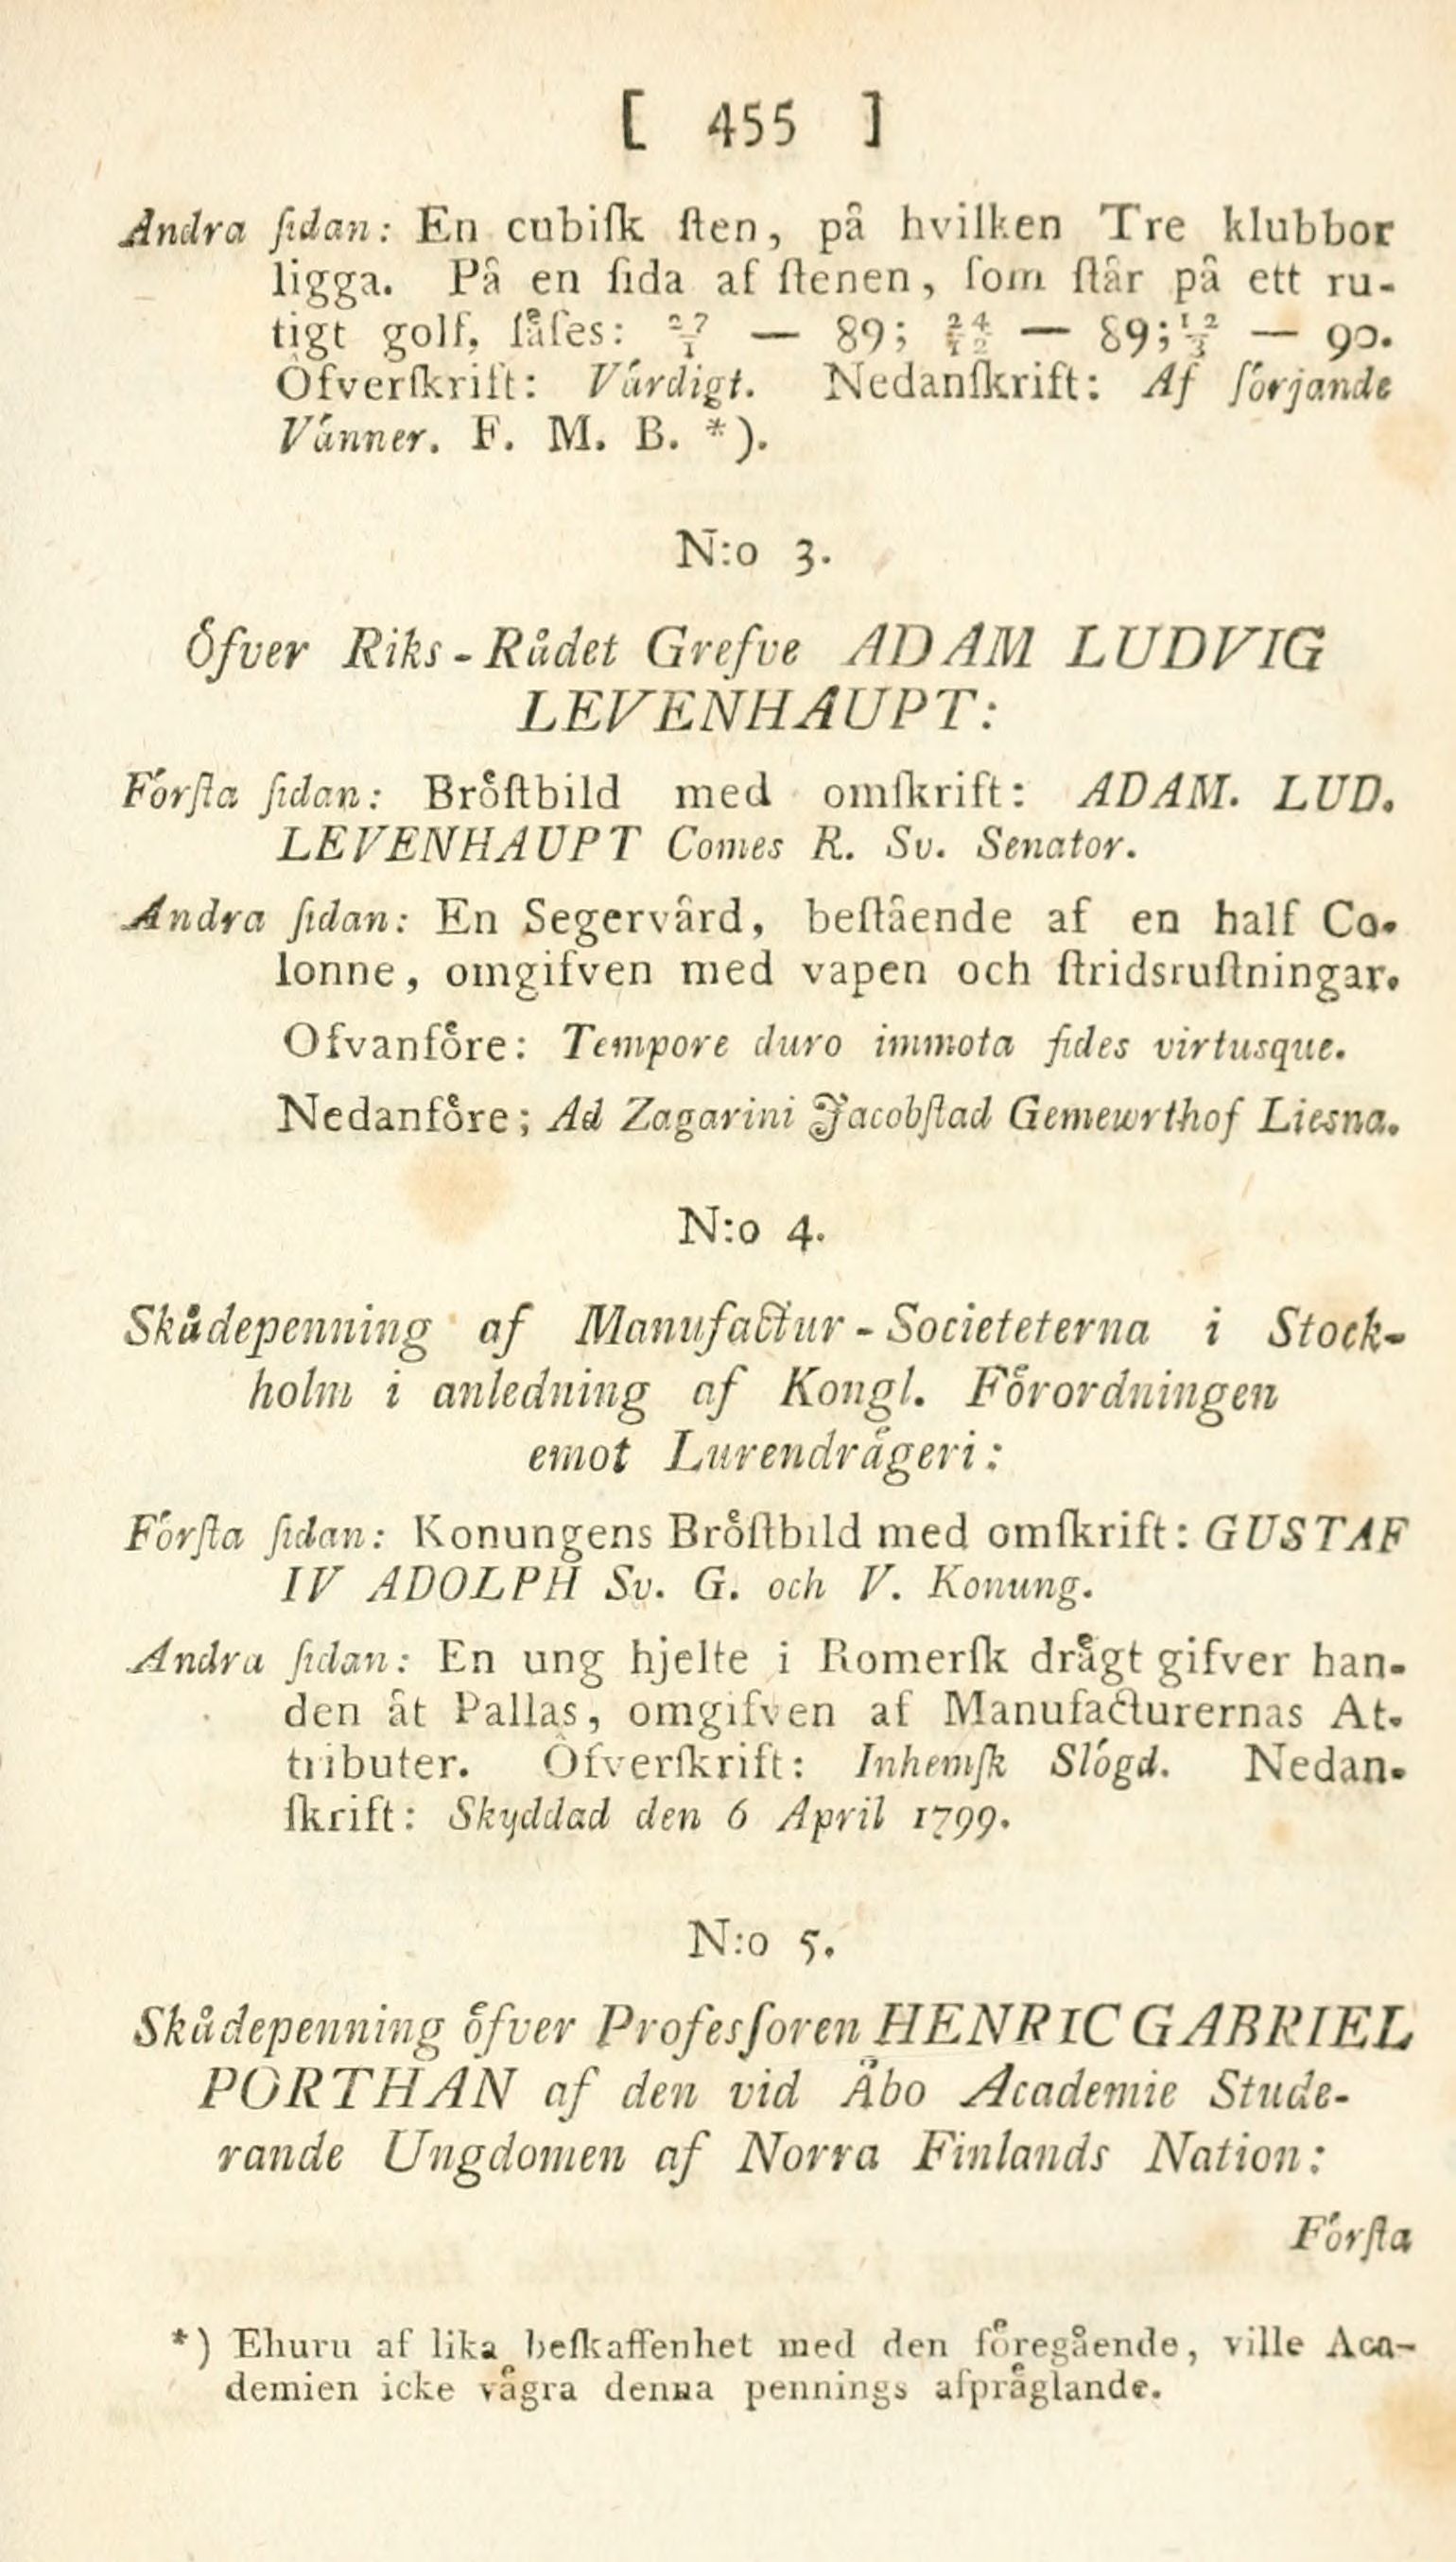 [ 455 ]
Andra ſidan: En cubiſk ſten, på hvilken Tre klubbor
ligga. På en ſida af ſtenen, ſom ſtår på ett ru-
tigt golf, låſes: 27/1 — 89; 24/12 — 89; 12/3 — 90.
Öfverſkrift: Värdigt. Nedanſkrift: Af ſörjande
Vänner. F. M. B. *).
N:o 3.
Öfver Riks-Rådet Grefve ADAM LUDVIG
LEVENHAUPT:
Förſta ſidan: Bröſtbild med omſkrift: ADAM. LUD.
LEVENHAUPT Comes R. Sv. Senator.
Andra ſidan: En Segervård, beſtående af en half Co-
lonne, omgifven med vapen och ſtridsruſtningar.
Ofvanföre: Tempore duro immota fides virtusque.
Nedanföre; Ad Zagarini Jacobſtad Gemewrthof Liesna.
N:o 4.
Skådepenning af Manufactur-Societeterna i Stock-
holm i anledning af Kongl. Förordningen
emot Lurendrägeri:
Förſta ſidan: Konungens Bröſtbild med omſkrift: GUSTAF
IV ADOLPH Sv. G. och V. Konung.
Andra ſidan: En ung hjelte i Romerſk drägt gifver han-
den åt Pallas, omgifven af Manufacturernas At-
tributer. Öfverſkrift: Inhemſk Slögd. Nedan-
ſkrift: Skyddad den 6 April 1799.
N:o 5.
Skådepenning öfver Profesſoren HENRIC GABRIEL
PORTHAN af den vid Åbo Academie Stude-
rande Ungdomen af Norra Finlands Nation:
Förſta
*) Ehuru af lika beſkaffenhet med den föregående, ville Aca-
demien icke vägra denna pennings afpräglande.